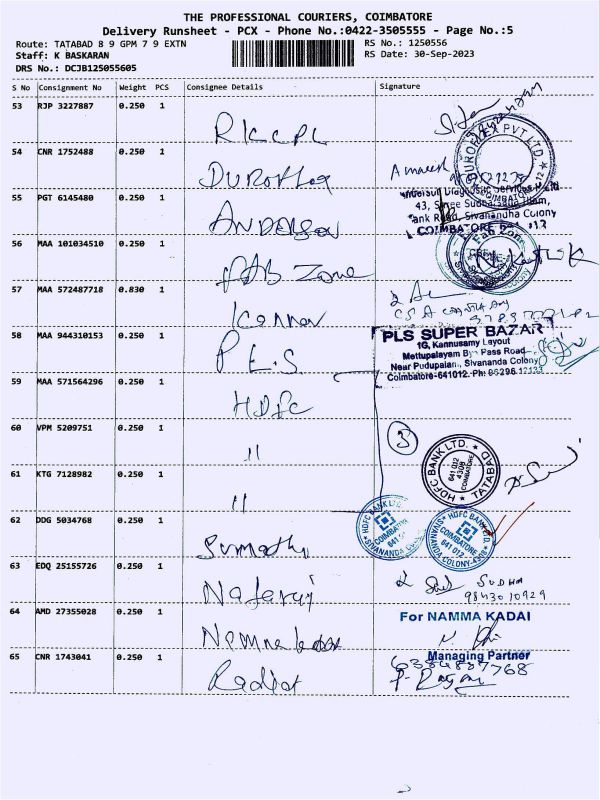 THE PROFESSIONAL COURIERS, COIMBATORE
Delivery Runsheet - PCX - Phone No.:0422-3505555 - Page No.:5
Route: TATABAD 8 9 GPM 7 9 EXTN RS No.: 1250556
Staff: K BASKARAN RS Date: 30-Sep-2023
DRS No.: DCJB125055605
S No Consignment No Weight PCS Consignee Details Signature
53 RJP 3227887 0.250 1
54 CNR 1752488 0.250 1 DUROFLEX
DUROFLEX PVT LTD. COIMBATORE
55 PGT 6145480 0.250 1 ANDERSON
Diagnostic Services P Ltd
43, Sree Sudharsana Illam,
Tank Road, Sivanandha Colony
COIMBATORE
56 MAA 101034510 0.250 1 FAB Zone
Fab Zone
57 MAA 572487718 0.830 1
58 MAA 944310153 0.250 1 P.E.S
PLS SUPER BAZAR
1G, Kannusamy Layout
Mettupalayam By Pass Road
Near Pudupalam, Sivananda Colony
Coimbatore-641012. Ph:
59 MAA 571564296 0.250 1 HDFC
60 VPM 5209751 0.250 1 "
3
HDFC BANK LTD. TATABAD
641 012
4309
COIMBATORE
61 KTG 7128982 0.250 1 "
62 DDG 5034768 0.250 1 Sumathi
HDFC BANK LTD. SIVANANDA COLONY
COIMBATORE
641 012
HDFC BANK LTD. SIVANANDA COLONY-4309
COIMBATORE
641 012
63 EDQ 25155726 0.250 1 Nataraj
SUDHA
9843010929
64 AMD 27355028 0.250 1
For NAMMA KADAI
Managing Partner
65 CNR 1743041 0.250 1